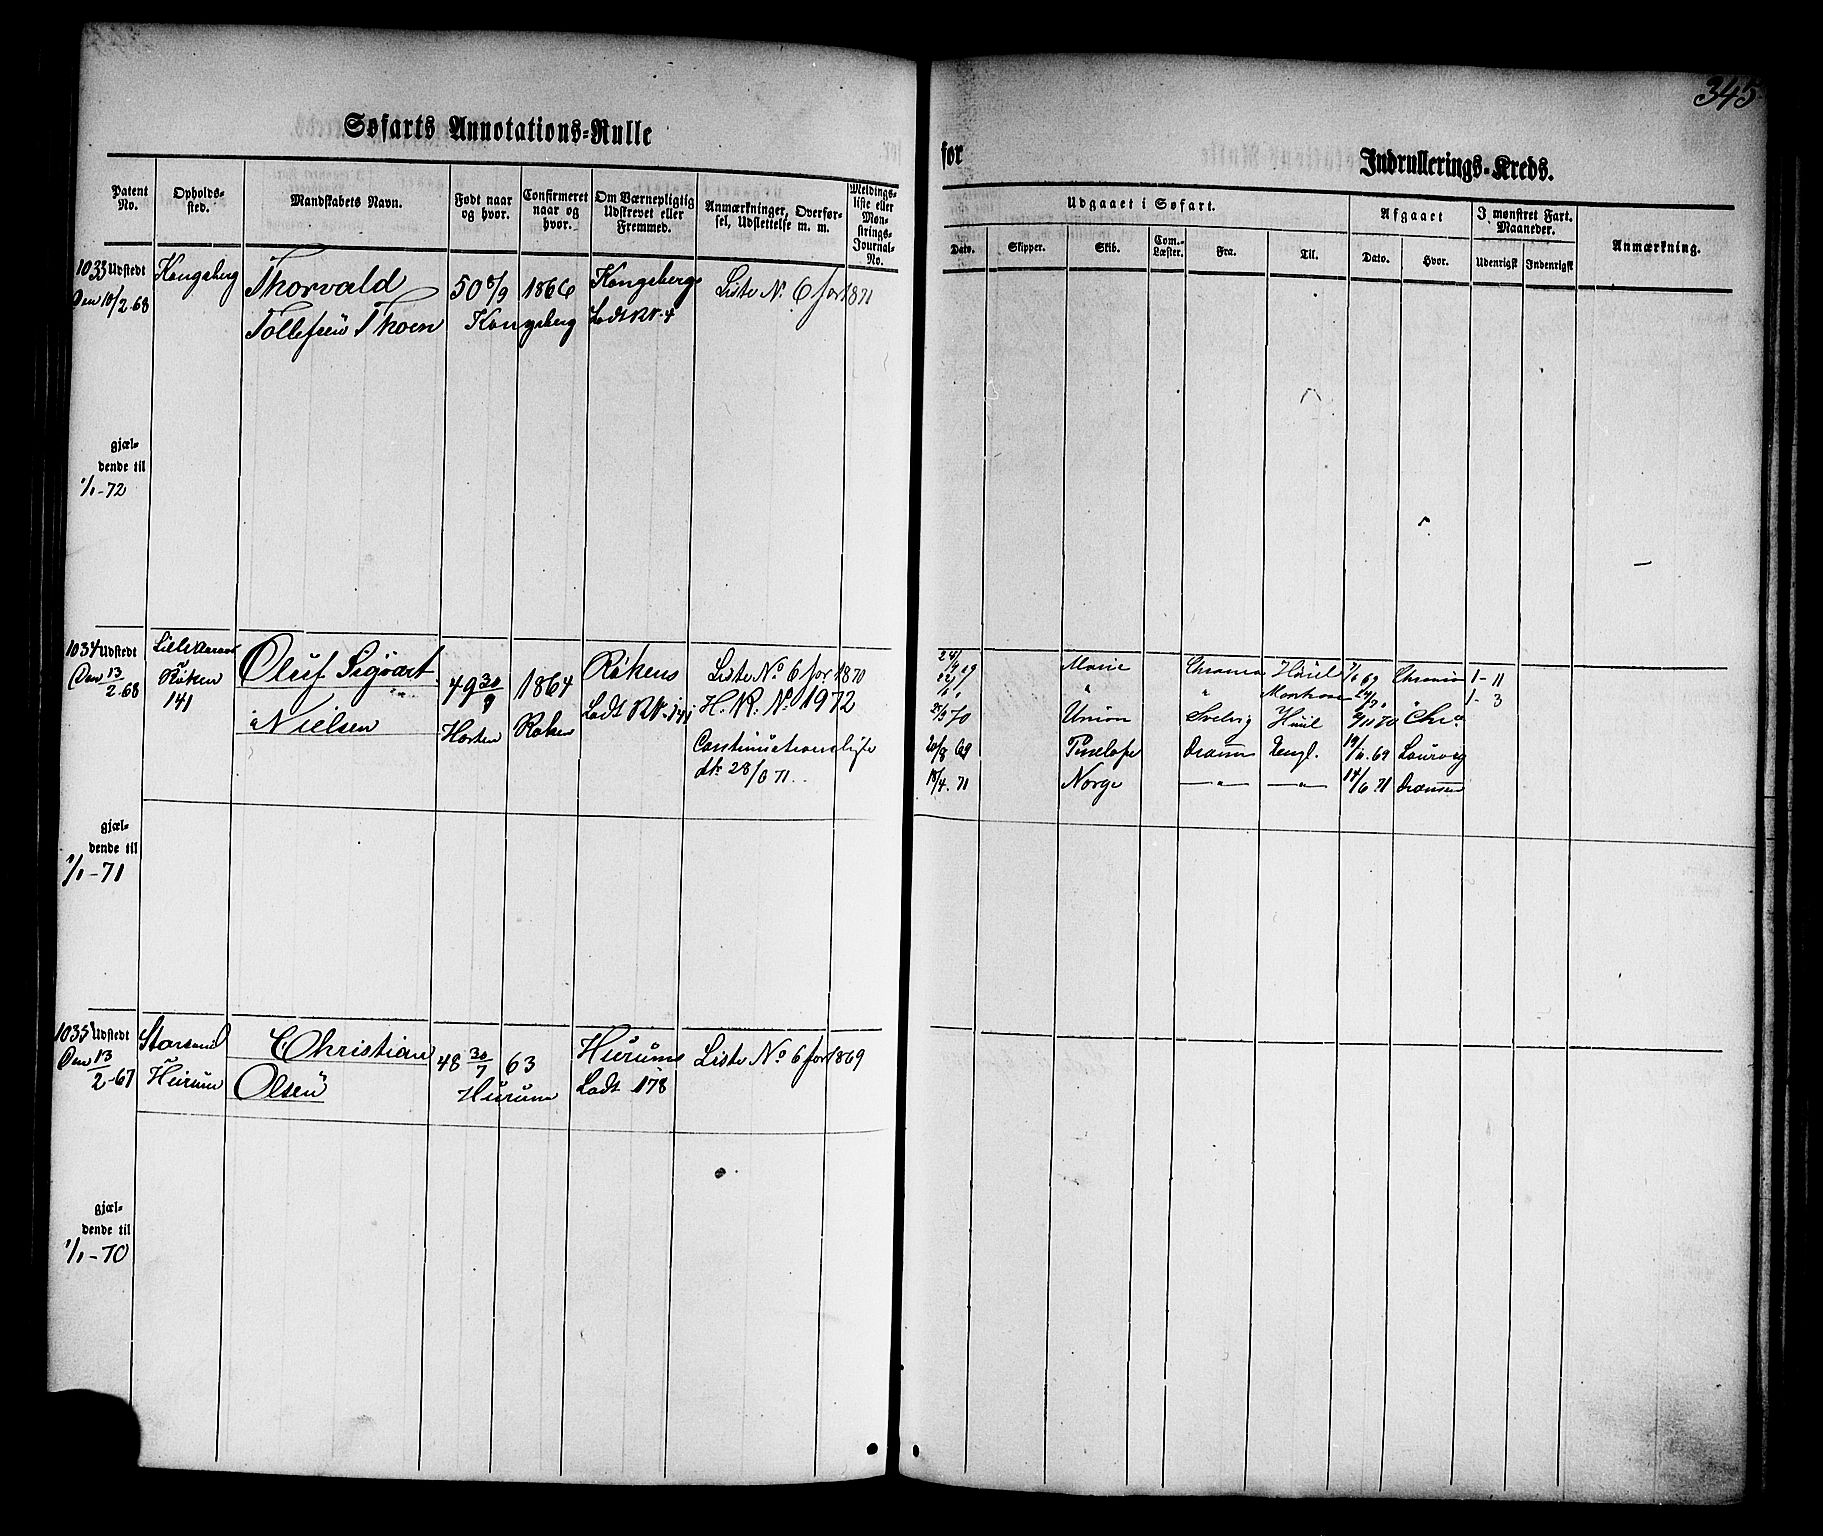 345
Søfarts Annotations-Rulle
for
Indrullerings-Kreds.
Patent No.
Opholdssted.
Mandskabets Navn.
Født naar og hvor.
Confirmeret naar og hvor.
Om Værnepligtig Udskrevet eller Fremmed.
Anmærkninger, Overførsel, Udslettelse m. m.
Meldingsliste eller Mønstrings-Journal-No.
Udgaaet i Søfart.
Afgaaet
I mønstret Fart. Maaneder.
Anmærkning.
Dato.
Skipper.
Skib.
Com.-Læster.
Fra.
Til.
Dato.
Hvor.
Udenrigsk
Indenrigsk
1033 Udstedt Kongsberg Thorvald 50 8/9 1866 Kongsbergs Liste No. 6 for 1871
Den 10/2-68 Tollefsen Thoen Kongsberg Lodt RN. 4
Gjældende til
1/1-72
1034 Udstedt Oluf Sigvart 49 30/9 1864 Røkens Liste No 6 for 1870
Den 13/2 68 Røken 141 Nielsen Horten Røken Lodt RN. 141 H. R. No 1972
dt. 28/ 71.
Marie 7/6 69 1-11
" " 1-3
70 Union Svelvig Chra
20/8 69 Penelope Dramm Engl. 19/11. 69 Laurvig
18/4. 71 Norge —"— —"— 14/6 71 Dramen
Gjældende til
1/1-71
1035 Udstedt Storsand Christian 48 30/7 63 Hurums Liste No 6 for 1869
Den 13/2-67 Hurum Olsen Hurum Lodt 178
Gjældende til
1/1-70